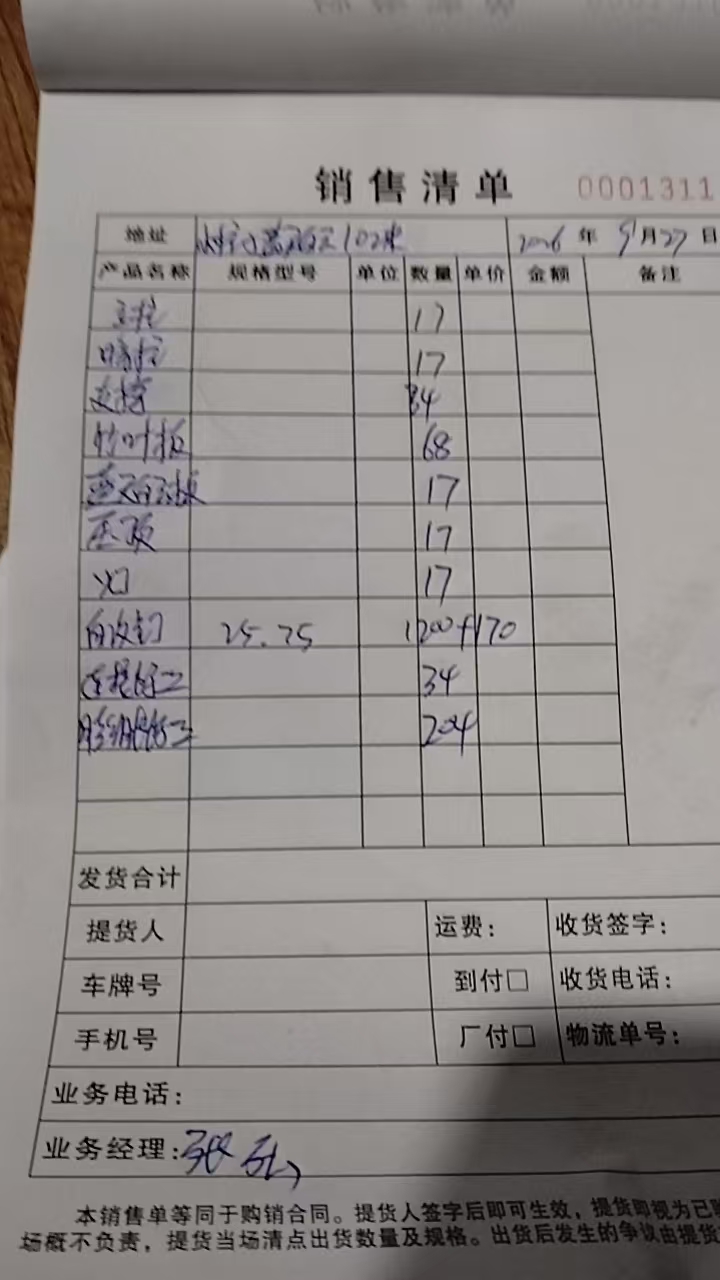 销售清单 0001311
地址 102米 2026年9月27日
产品名称 规格型号 单位 数量 单价 金额 备注
立柱 17
17
支撑 34
竹叶板 68
17
压顶 17
17
自攻钉 25.75 1200+170
34
204
发货合计
提货人 运费: 收货签字:
车牌号 到付□ 收货电话:
手机号 厂付□ 物流单号:
业务电话:
业务经理: 张
本销售单等同于购销合同。提货人签字后即可生效，提货即视为已
场概不负责，提货当场清点出货数量及规格。出货后发生的争议由提货